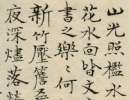 山光照檻水
花水面皆文
書之樂々何
新竹壓簷桑
夜深燼落螢